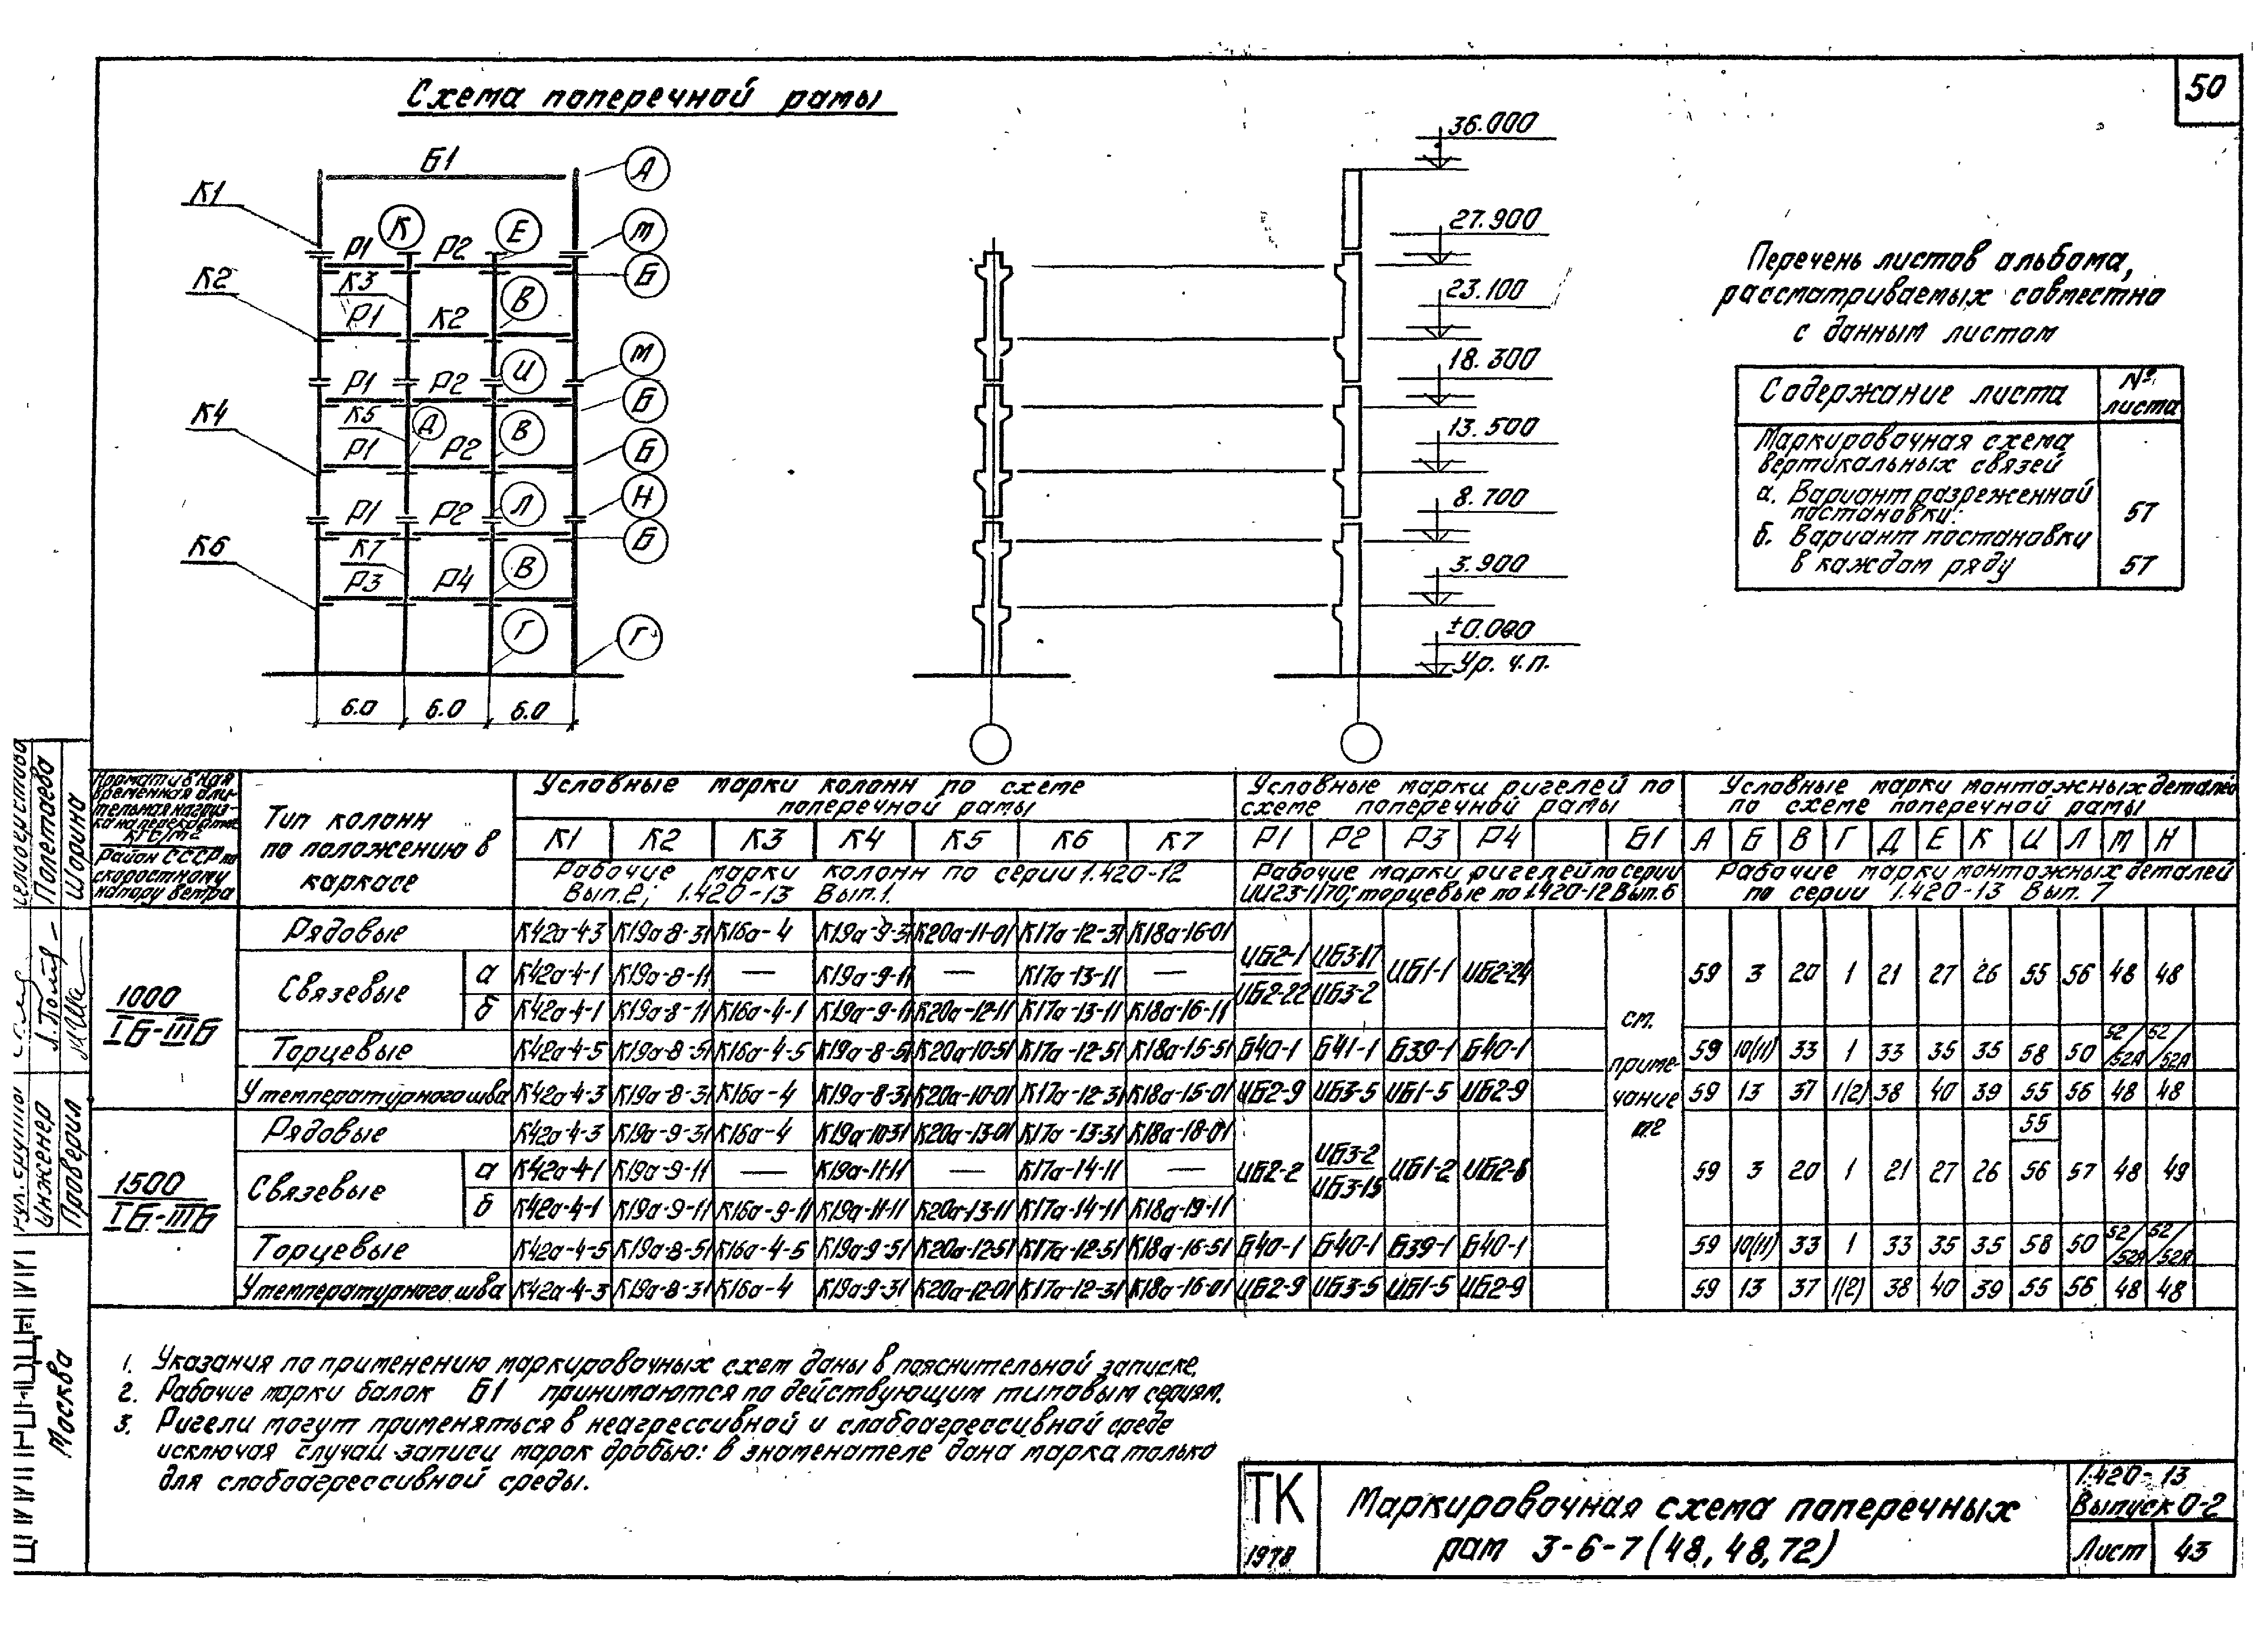 50
Схема поперечной рамы
Б1
А
К1
К
Е
М
Р1
Р2
Б
К2
К3
В
Р1
К2
И
М
Р1
Р2
Б
К4
К5
Д
В
Р1
Р2
Б
Н
Р1
Р2
Л
Б
К6
К7
В
Р3
Р4
Г
Г
6.0
6.0
6.0
36.000
27.900
23.100
18.300
13.500
8.700
3.900
±0.000
Ур. ч.п.
Перечень листов альбома,
рассматриваемых совместно
с данным листом
Содержание листа № листа
Маркировочная схема
вертикальных связей
а. Вариант разреженной
постановки: 57
б. Вариант постановки
в каждом ряду 57
Нормативная
временная дли-
тельная нагруз-
ка на перекрытие
кгс/м2
Район СССР по
скоростному
напору ветра
Тип колонн
по положению в
каркасе
Условные марки колонн по схеме
поперечной рамы
К1 К2 К3 К4 К5 К6 К7
Рабочие марки колонн по серии 1.420-12
Вып.2; 1.420-13 Вып.1.
Условные марки ригелей по
схеме поперечной рамы
Р1 Р2 Р3 Р4 Б1
Рабочие марки ригелей по серии
ИИ23-1/70; торцевые по 1.420-12 Вып.6
Условные марки монтажных деталей
по схеме поперечной рамы
А Б В Г Д Е К И Л М Н
Рабочие марки монтажных деталей
по серии 1.420-13 Вып. 7
1000
IБ-IIIБ
Рядовые К42а-4-3 К19а-8-31 К16а-4 К19а-9-31 К20а-11-01 К17а-12-31 К18а-16-01
Связевые
а К42а-4-1 К19а-8-11 — К19а-9-11 — К17а-13-11 —
б К42а-4-1 К19а-8-11 К16а-4-1 К19а-9-11 К20а-12-11 К17а-13-11 К18а-16-11
ИБ2-1 ИБ3-17
ИБ2-22 ИБ3-2
ИБ1-1 ИБ2-24
59 3 20 1 21 27 26 55 56 48 48
Торцевые К42а-4-5 К19а-8-51 К16а-4-5 К19а-8-51 К20а-10-51 К17а-12-51 К18а-15-51 Б40-1 Б41-1 Б39-1 Б40-1 59 10(11) 33 1 33 35 35 58 50 52/52А 52/52А
У температурного шва К42а-4-3 К19а-8-31 К16а-4 К19а-8-31 К20а-10-01 К17а-12-31 К18а-15-01 ИБ2-9 ИБ3-5 ИБ1-5 ИБ2-9 59 13 37 1(2) 38 40 39 55 56 48 48
см.
приме-
чание
п2
1500
IБ-IIIБ
Рядовые К42а-4-3 К19а-9-31 К16а-4 К19а-10-31 К20а-13-01 К17а-13-31 К18а-18-01
Связевые
а К42а-4-1 К19а-9-11 — К19а-11-11 — К17а-14-11 —
б К42а-4-1 К19а-9-11 К16а-9-11 К19а-11-11 К20а-13-11 К17а-14-11 К18а-19-11
ИБ2-2
ИБ3-2
ИБ3-15
ИБ1-2 ИБ2-6
59 3 20 1 21 27 26 55/56 57 48 49
Торцевые К42а-4-5 К19а-8-51 К16а-4-5 К19а-9-51 К20а-12-51 К17а-12-51 К18а-16-51 Б40-1 Б40-1 Б39-1 Б40-1 59 10(11) 33 1 33 35 35 58 50 52/52А 52/52А
У температурного шва К42а-4-3 К19а-8-31 К16а-4 К19а-9-31 К20а-12-01 К17а-12-31 К18а-16-01 ИБ2-9 ИБ3-5 ИБ1-5 ИБ2-9 59 13 37 1(2) 38 40 39 55 56 48 48
1. Указания по применению маркировочных схем даны в пояснительной записке.
2. Рабочие марки балок Б1 принимаются по действующим типовым сериям.
3. Ригели могут применяться в неагрессивной и слабоагрессивной среде
исключая случай записи марок дробью: в знаменателе дана марка только
для слабоагрессивной среды.
ТК
1978
Маркировочная схема поперечных
рам 3-6-7 (48, 48, 72)
1.420-13
Выпуск 0-2
Лист 43
Инженер Полетаева
Проверил Шорина
Москва